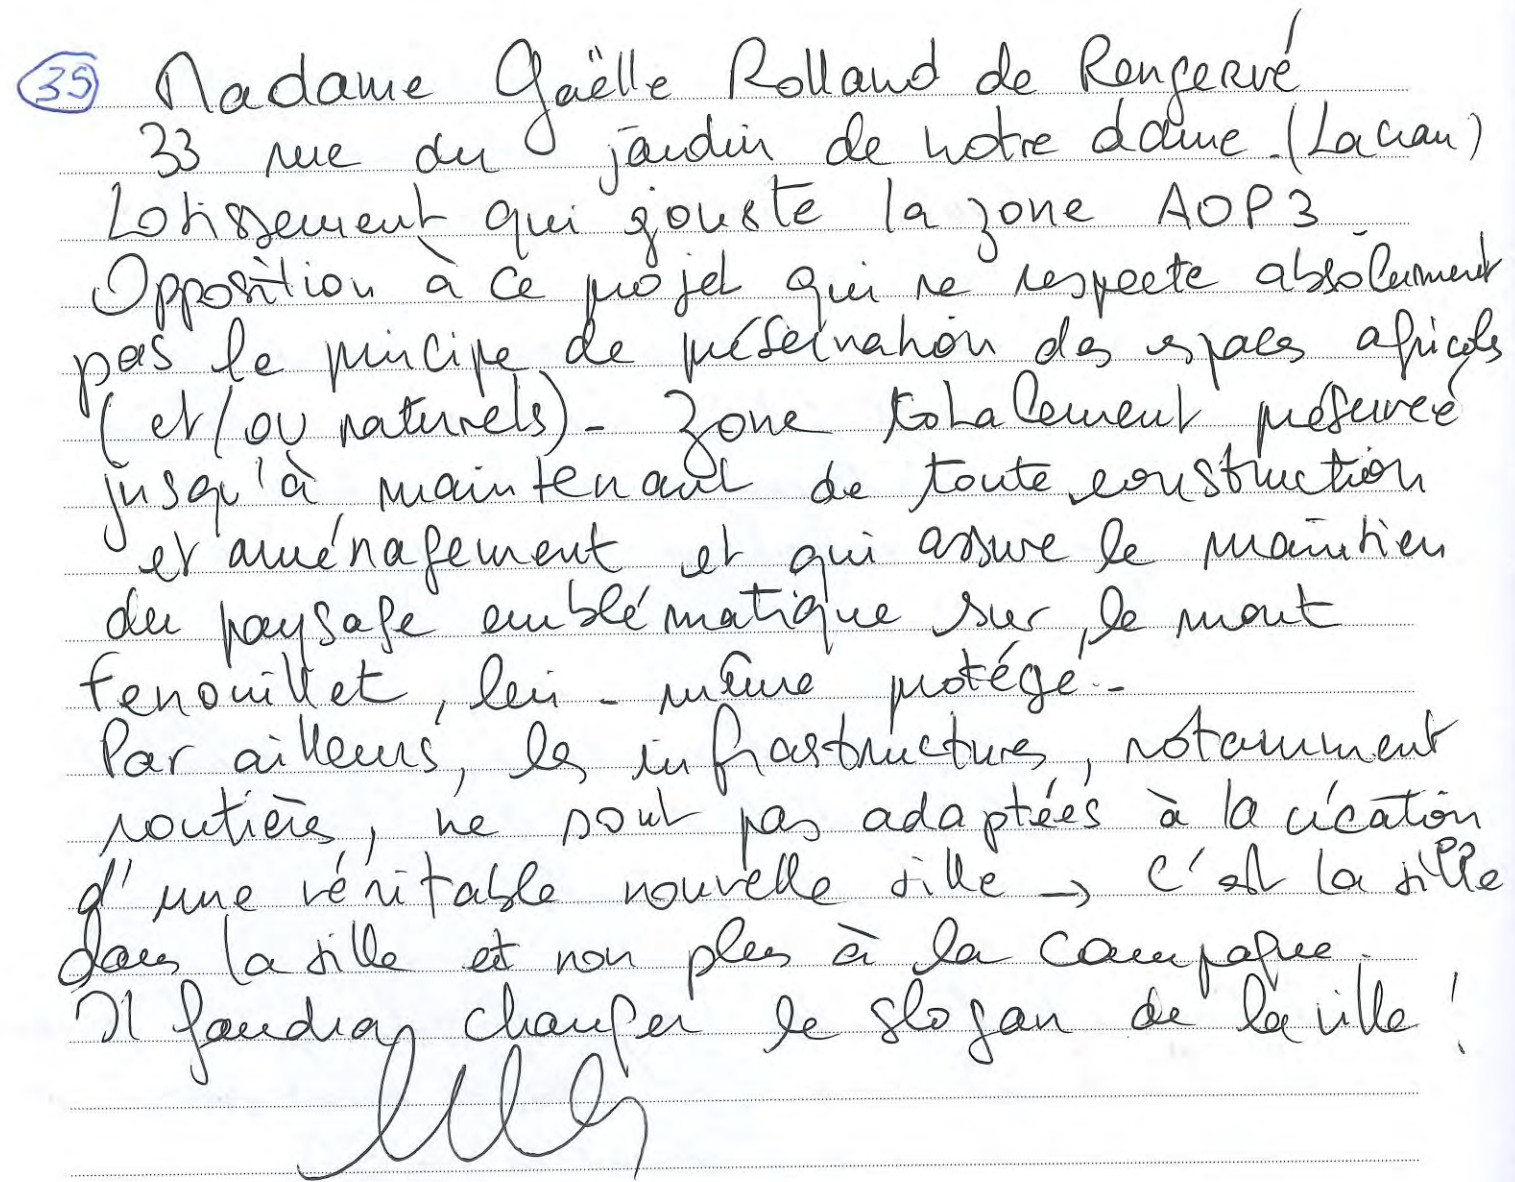 35 Madame Gaëlle Rolland de Rengervé
33 rue du jardin de notre dame (La Crau)
Lotissement qui jouste la zone AOP3
Opposition à ce projet qui ne respecte absolument
pas le principe de préservation des espaces agricoles
(et/ou naturels) - Zone totalement préservée
jusqu'à maintenant de toute construction
et aménagement et qui assure le maintien
du paysage emblématique sur le mont
fenouillet, lui-même protégé.-
Par ailleurs, les infrastructures, notamment
routières, ne sont pas adaptées à la création
d'une véritable nouvelle ville → c'est la ville
dans la ville et non plus à la campagne.
Il faudra changer le slogan de la ville !